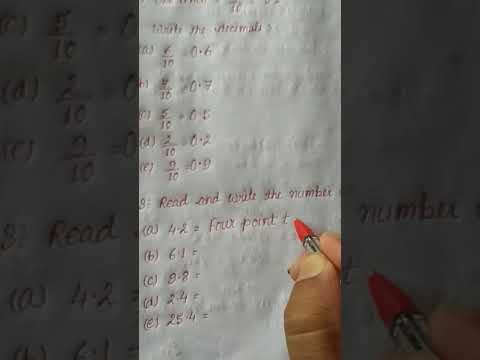 Write the decimals:
(a) 6/10 = 0.6
(b) 7/10 = 0.7
(c) 5/10 = 0.5
(d) 2/10 = 0.2
(e) 9/10 = 0.9
3: Read and write the number
(a) 4.2 = Four point t
(b) 6.1 =
(c) 8.8 =
(d) 2.4 =
(e) 25.4 =